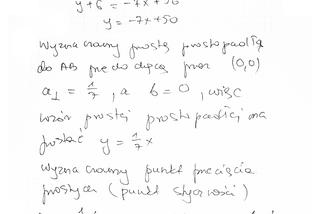 y+6 = -7x+56
y = -7x+50
Wyznaczamy prostą prostopadłą
do AB przechodzącą przez (0,0)
a⊥ = 1/7, a b=0, więc
wzór prostej prostopadłej ma
postać y = 1/7 x
Wyznaczamy punkt przecięcia
prostych (punkt styczności)